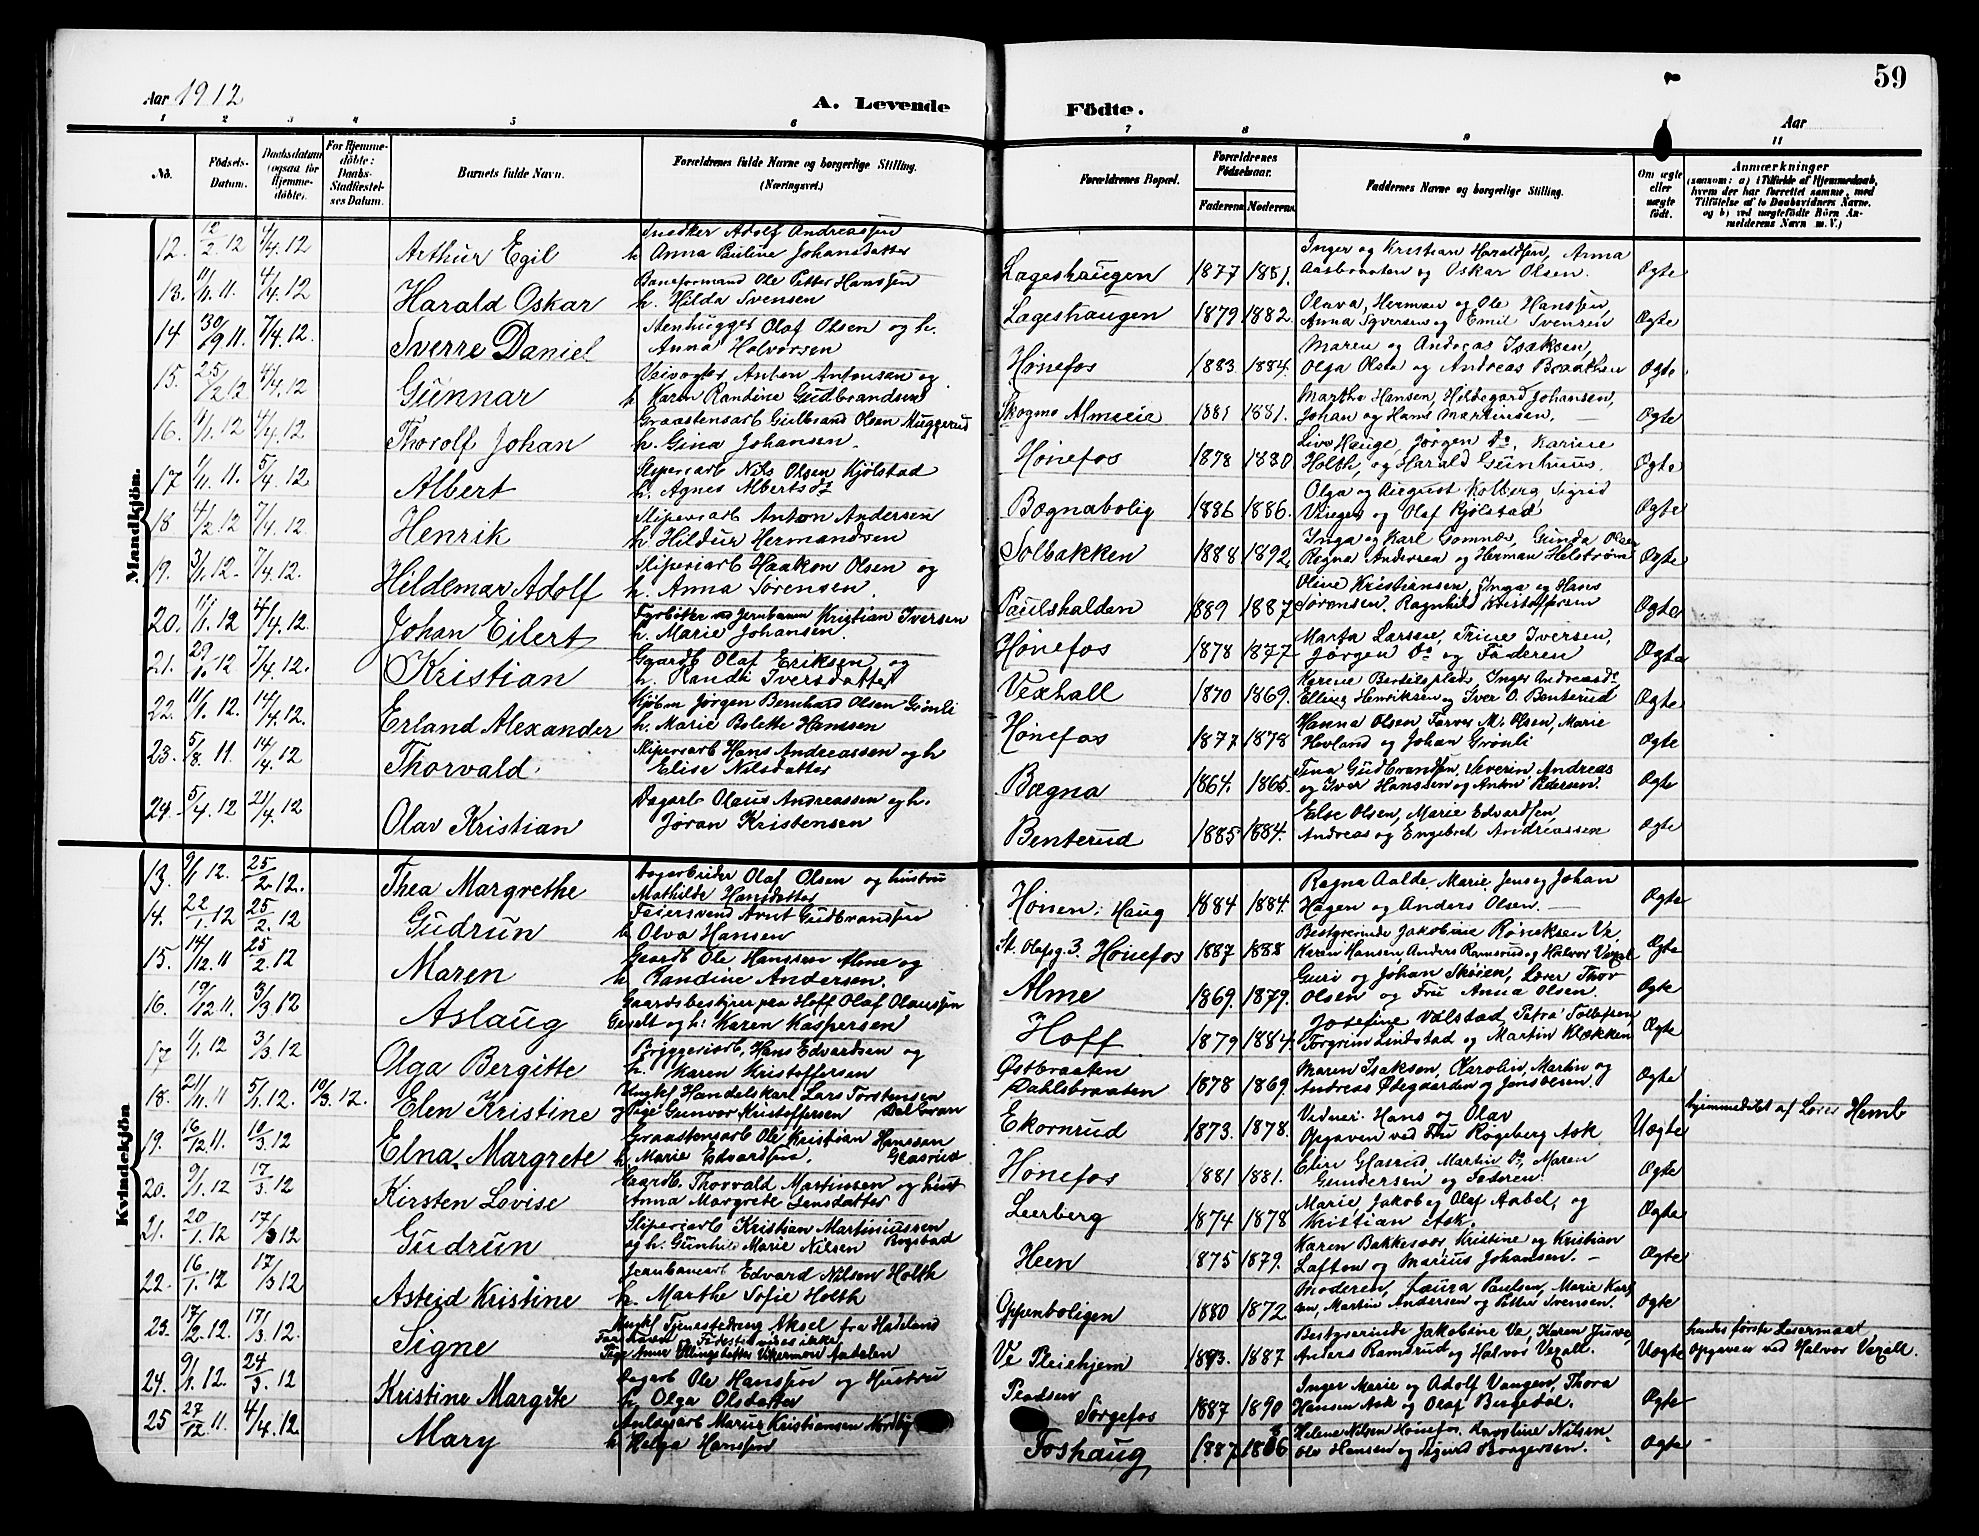 Aar 1912
A. Levende
Födte.
59
Aar
1 2 3 4 5 6 7 8 9 11
No.
Födsels-Datum.
Daabsdatum (ogsaa for Hjemme-döbte).
For Hjemme-döbte: Daabs-Stadfæstel-ses Datum.
Barnets fulde Navn.
Forældrenes fulde Navne og borgerlige Stilling. (Næringsvei.)
Forældrenes Bopæl.
Forældrenes Födselsaar.
Faderens Moderens
Faddernes Navne og borgerlige Stilling.
Om ægte eller uægte födt.
Anmærkninger
(saasom: a) i Tilfælde af Hjemmedaab, hvem der har forrettet samme, med Tilföielse af to Daabsvidners Navne, og b) ved uægtefödte Börn An-melderens Navn m. V.)
Mandkjön.
12. 12/2 12 4/4 12 Arthur Egil Snedker Adolf Andreassen h. Anna Pauline Johansdatter Lageshaugen 1877 1881. Inger og Kristian Haraldsen, Anna Aasbraaten og Oskar Olsen. Ægte
13. 11/11 11. 4/4 12 Harald Oskar Baneformand Ole Petter Hanssen h. Hilda Svensen Lageshaugen 1879 1882. Olava, Herman og Ole Hanssen, Anna Syversen og Emil Svensen Ægte
14 30/9 11. 7/4 12. Sverre Daniel Stenhugger Olaf Olsen og h. Anna Halvorsen Hönefos 1883 1884. Maren og Andreas Isaksen, Olga Olsen og Andreas Braathen Ægte
15. 25/2 12 4/4 12 Gunnar Veivogter Anton Antonsen og h. Karen Randine Gudbrandsen Skogmo Almeeia 1881 1881. Marthe Hansen, Hildegard Johansen, Johan og Hans Martinsen. Ægte
16. 1/1 12 4/4 12 Thorolf Johan Graastensarb Gulbrand Olsen Muggerud h. Gina Johansen. Hönefos 1878 1880 Live Hauge, Jørgen Do, Karine Holth, og Harald Gunhuus. Ægte
17 1/11 11. 5/4 12 Albert Sliperiarb Nils Olsen Kjölstad h. Agnes Albertsdt Bægnabolig 1886 1886. Olga og August Kolberg, Sigrid Vinger og Olaf Kjölstad Ægte
18 4/2 12 7/4 12 Henrik Sliperiarb Anton Andersen h. Hildur Hermandsen Solbakken 1888 1892 Inga og Karl Gomnæs, Gunda Olsen, Ragna Andersen og Herman Helström Ægte
19. 3/1 12. 7/4 12. Hildemar Adolf Sliperiarb Haakon Olsen og h. Anna Sørensen. Paulshalden 1889 1887 Oline Kristiansen, Inga og Hans Sørensen, Ragnhild Kristoffersen Ægte
20. 17/1 12 4/4 12. Johan Eilert Fyrböter ved Jernbanen Kristian Iversen h. Marie Johansen. Hönefos 1878 1877 Marta Larsen, Trine Iversen, Jørgen Do og Faderen Ægte
21. 12 7/4 12. Kristian Gaardb Olaf Eriksen og h. Randi Iversdatter Vexhall 1870 1869. Karine Bertilsplads, Inger Andreasdt Elling Henriksen og Iver O. Benterud Ægte
22. 11/1 12. 14/4 12. Erland Alexander Kjöbm Jørgen Bernhard Olsen Grönli h. Marie Bolette Hanssen Hönefos 1877 1878 Hanna Olsen, Farver M. Olsen, Marie Hovland og Johan Grönli Ægte
23. 5/8 11 14/4 12 Thorvald Sliperiarb Hans Andreassen og h Elise Nilsdatter Bægna 1864. 1865 Tina Gudbrandsen, Severin, Andreas og Iver Hanssen og Anton Pedersen. Ægte
24. 5/4 12 21/4 12 Olav Kristian Dagarb Olaus Andreassen og h. Jøran Kristensen Benterud 1885 1884. Else Olsen, Marie Edvardsen, Andreas og Engebret Andreassen Ægte
Kvindekjön
13. 9/1 12. 25/2 12. Thea Margrethe Dagarbeider Olaf Olsen og hustru Mathilde Hansdatter Hönen: Haug 1884 1884. Ragna Aalde, Marie, Jens og Johan Hagen og Anders Olsen. Ægte
14. 22/1 12 25/2 12 Gudrun Feiersvend Arnt Gudbrandsen h. Olva Hansen St. Olafsg. 3 Hönefos 1887 1888 Bestyrerinde Jakobine Ve, Karen Hansen, Anders Ramsrud og Halvor Vexal Ægte
15. 14/12 11 25/2 12 Maren Gaardb Ole Hanssen Alme og h Randine Andersen. Alme 1869. 1879. Guri og Johan Skøien, Lærer Thor Olsen og Fru Anna Olsen. Ægte
16. 19/12 11. 3/3 12 Aslaug Gaardsbestyrer paa Hoff Olaf Olaussen og h. Karen Kaspersen Hoff 1879 1884. Josefine Valstad, Petra Tollefsen Torgrim Lindstad og Martin Klækken Ægte
17 1/1 12 3/3 12 Olga Bergitte Bryggeriarb, Hans Edvardsen og h. Karen Kristoffersen Østbraaten Dahlsbraaten 1878 1869. Maren Isaksen, Karolin, Martin og Andreas Ødegaarden og Jonsveien. Ægte
18. 21/11 11 5/1 12. 10/3 12. Elen Kristine Ungkf Handelskarl Lars Torstensen Dalseran og Pige Gunvor Kristoffersen Ekornrud 1873. 1878. Vidner: Hans og Olav Opgaven ved Fru Røgeberg Ask Uægte hjemmedöbt af Lærer Hemb
19. 16/12 11. 10/3 12 Elna Margrete Graastensarb Ole Kristian Hanssen Glasrud h. Marie Edvardsen. Hönefos 1881 1881. Elise Glasrud, Martin Do, Maren Gundersen og Faderen Ægte
20. 9/1 12 17/3 12 Kirsten Lovise Gaardb. Thorvald Martinsen og hust Anna Margrete Jensdatter Leerberg 1874 1878 Marie, Jakob og Olaf Aabel, og Kristian Ask. Ægte
21. 20/1 12 17/3 12 Gudrun Sliperiarb Kristian Martiniussen Bogstad og h. Gunhild Marie Nilsen Heen 1875 1879. Karen Bakkesvær Kristine og Kristian Lafton og Marius Johansen. Ægte
22. 16/1 12 17/3 12 Astrid Kristine Jernbanearb Edvard Nilsen Holth h. Marthe Sofie Holth Oppenboligen 1880 1872. Moderen, Laura Paulsen, Marie Karlsen, Martin Andersen og Petter Svensen. Ægte
23. 17/2 12. 17/3 12. Signe Ungkf Tjenestedreng Aksel fra Hadeland Farnavn og Födested vides ikke Pige Anne Ellingsdatter Vikermoen Aadalen Ve Pleiehjem 1893. 1887 Bestyrerinde Jakobine Ve, Karen Juve, Anders Ramsrud og Halvor Vexall. Uægte hendes förste Leiermaal opgaven ved Halvor Vexall.
24. 9/1 12. 24/3 12 Kristine Margrete Dagarb Ole Hanssen og Hustru h. Olga Olsdatter Pladsen Sørgefos 1887 1890 Inger Marie og Adolf Vangen, Thora Hansen Ask og Olaf Bergedal. Ægte
25 27/12 11. 4/4 12. Mary Anlægsarb Marius Kristiansen Nordby h Helga Hanssen Foshaug 1887 1886 Helene Nilsen Hönefos, Karoline Nilsen Ole Hansen og Sigurd Borgersen. Ægte